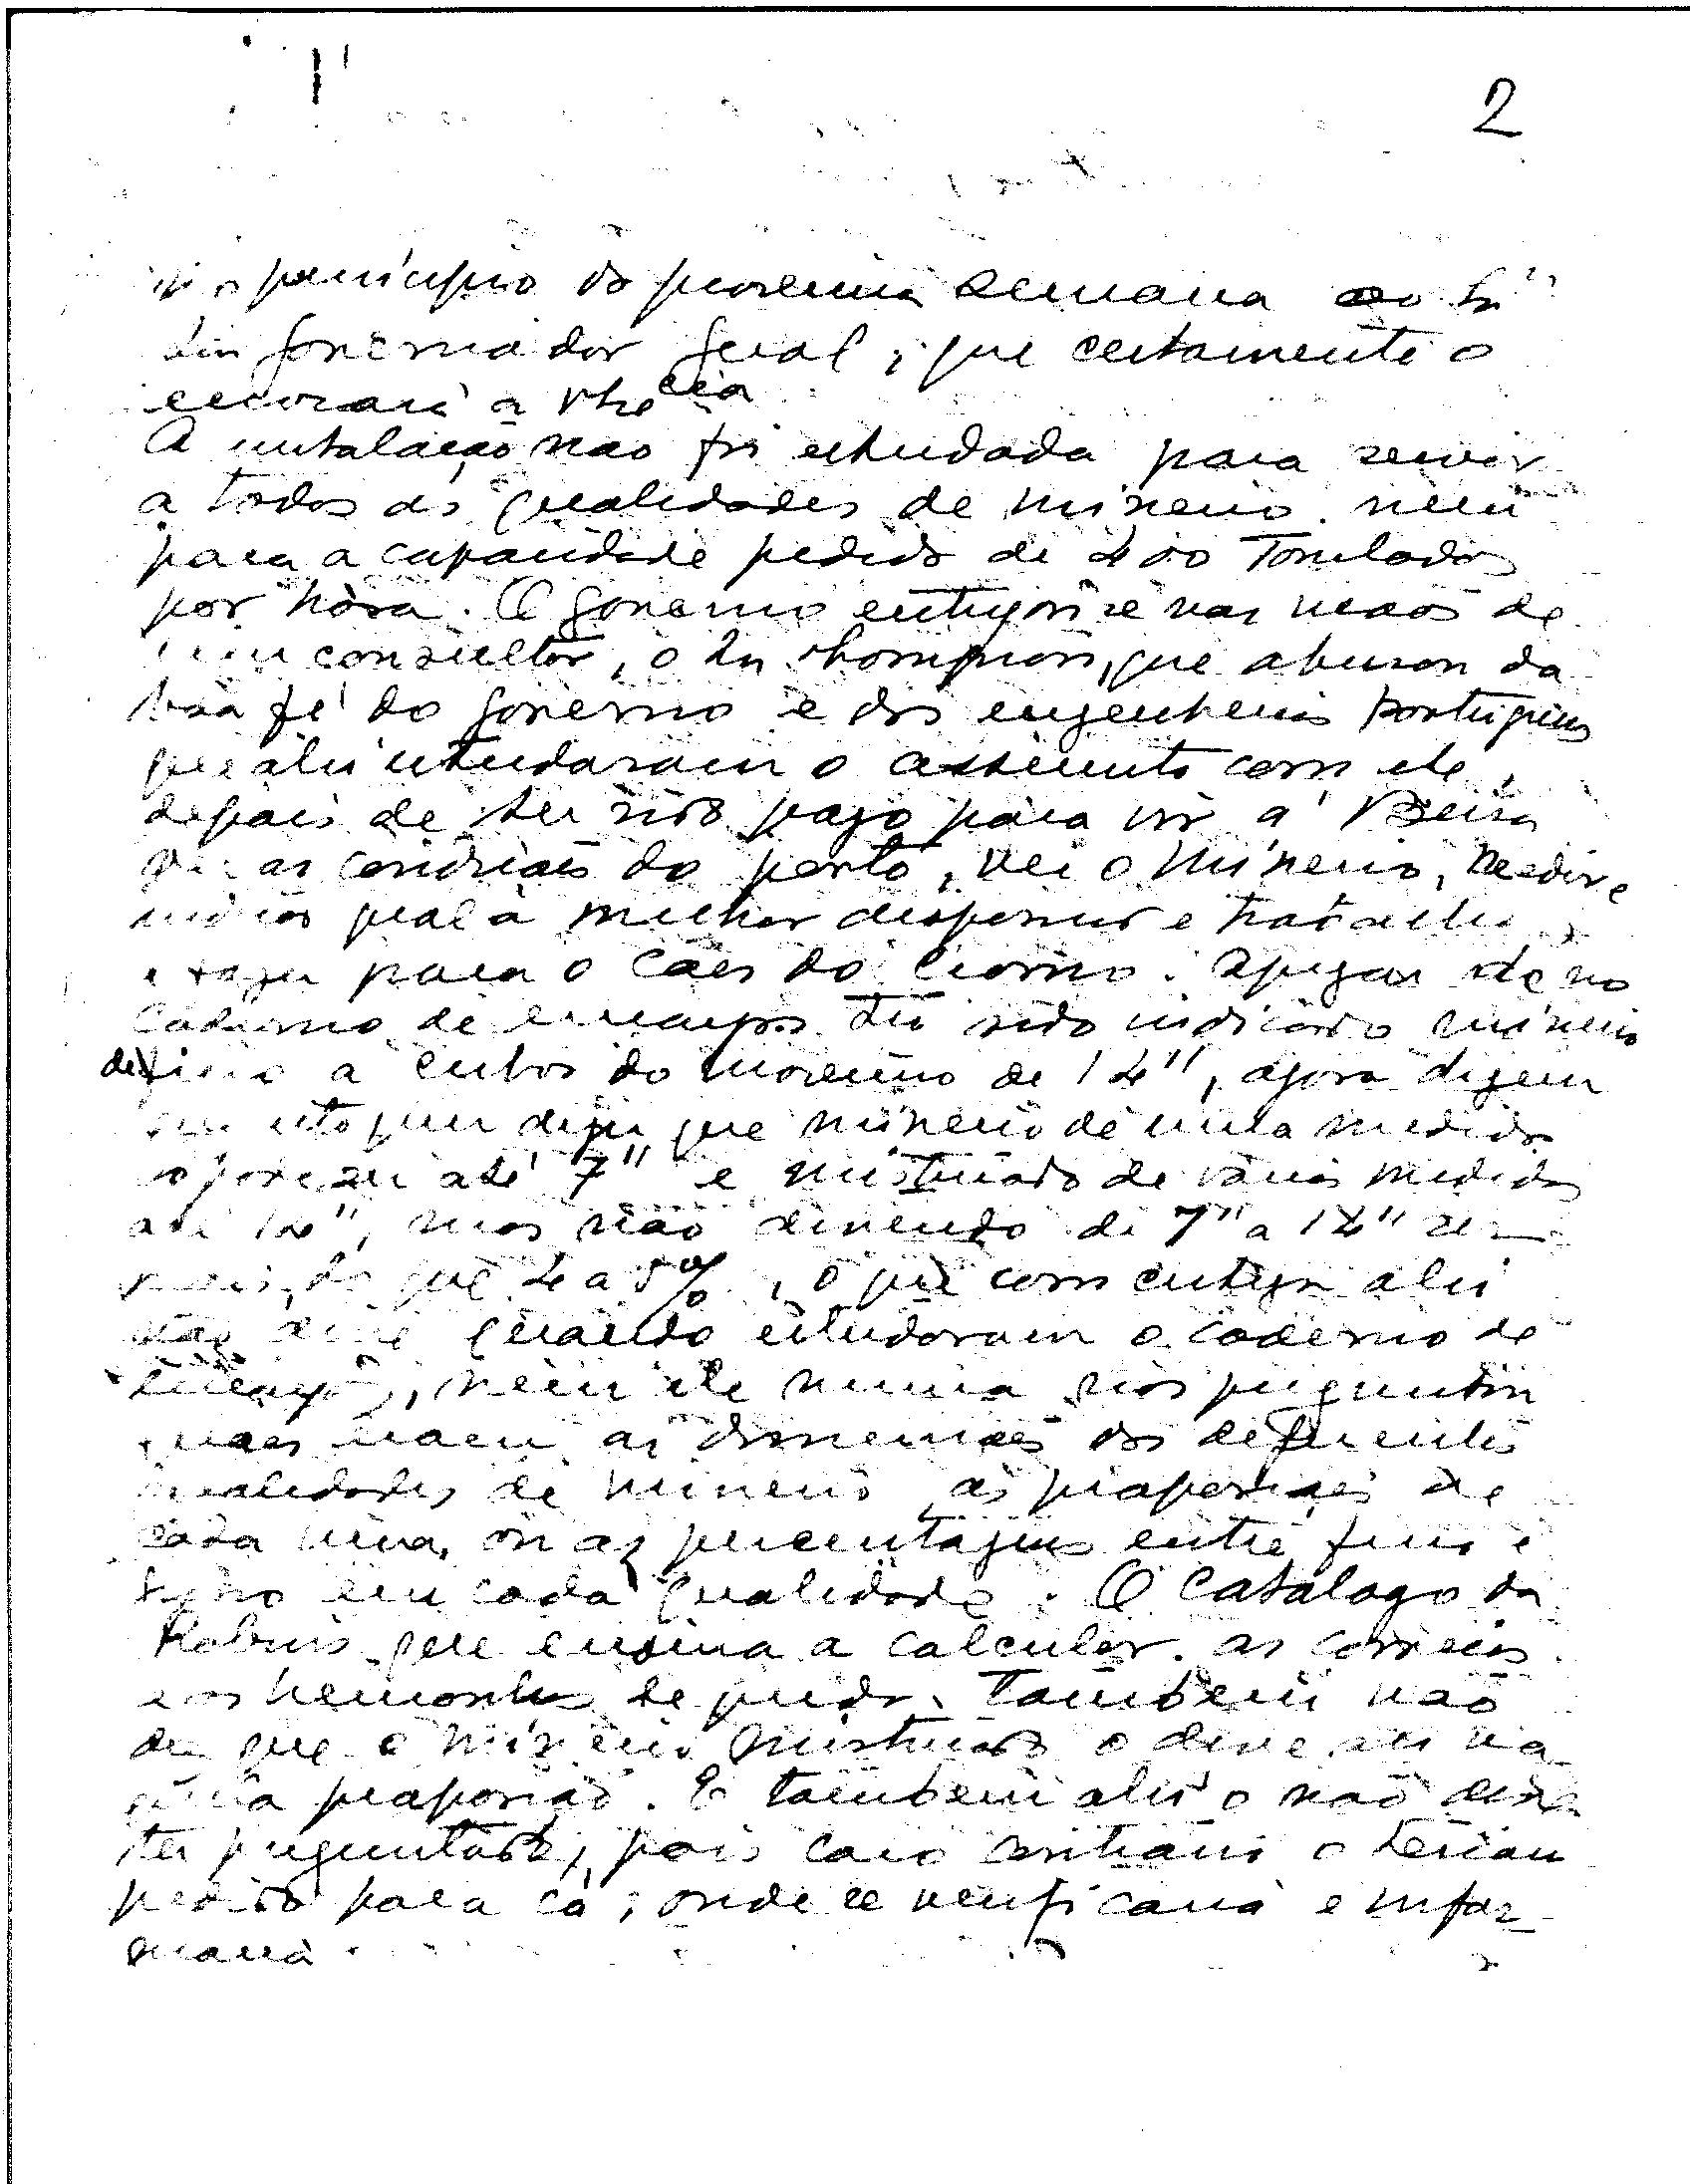 2
principio da proxima semana ao Snr
Governador Geral, que certamente o
enviará a V. Excia
A instalação não foi estudada para servir
a todas as qualidades de minerio nem
para a capacidade pedida de 400 Toneladas
por hora. O Governo entregou-se nas maos de
um consultor, o Snr Thompson, que abusou da
boa fé do Governo e dos engenheiros portugueses
que ali estudaram o assunto com ele,
depois de ter sido pago para vir á Beira
ver as condições do porto, ver o minerio, medir e
indicar qual a melhor
trazer para o Caes do Chrome. Apezar de no
caderno de encargos ter sido indicado minerio
de fino a cubos do maximo de 14", agora dizem
que isto quer dizer que minerio de uma medida
o forem até 7" e misturado de varias medidas
até 14", mas não devendo de 7" a 14" ser
mais do que 4 a 5%, o que com certeza ali
não disse quando estudaram o caderno de
encargos, nem ele nunca nos perguntou
quaes eram as dimensões das diferentes
qualidades de minerio, as proporções de
cada uma, ou as percentagens entre fino e
em cada qualidade. O Catalogo da
Robins que ensina a calcular as correias
de pedra, Tambem não
diz que o minerio misturado o deve ser na
proporção. E tambem ali o não deve
ter perguntado, pois caso contrario o teriam
pedido para cá, onde se verificaria e infor-
maria.